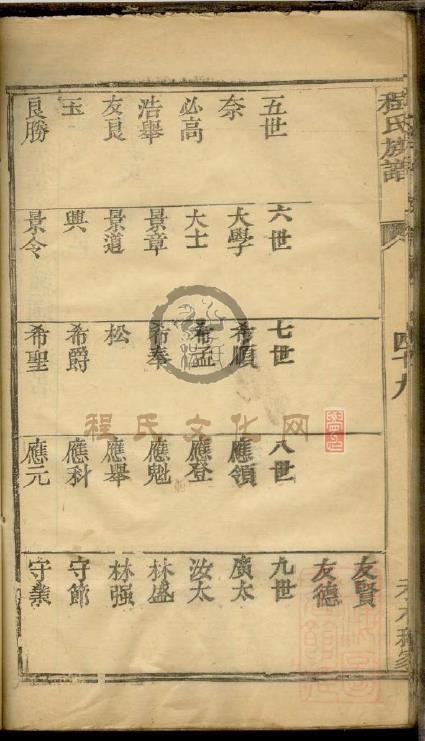 程氏族譜
四十九
友賢
友德
五世
六世
七世
八世
九世
奈
大學
希順
應領
廣太
必高
大士
希孟
應登
汝太
浩舉
景章
希奉
應魁
林盛
友良
景道
松
應舉
林强
玉
興
希爵
應科
守節
良勝
景令
希聖
應元
守業
程氏文化网